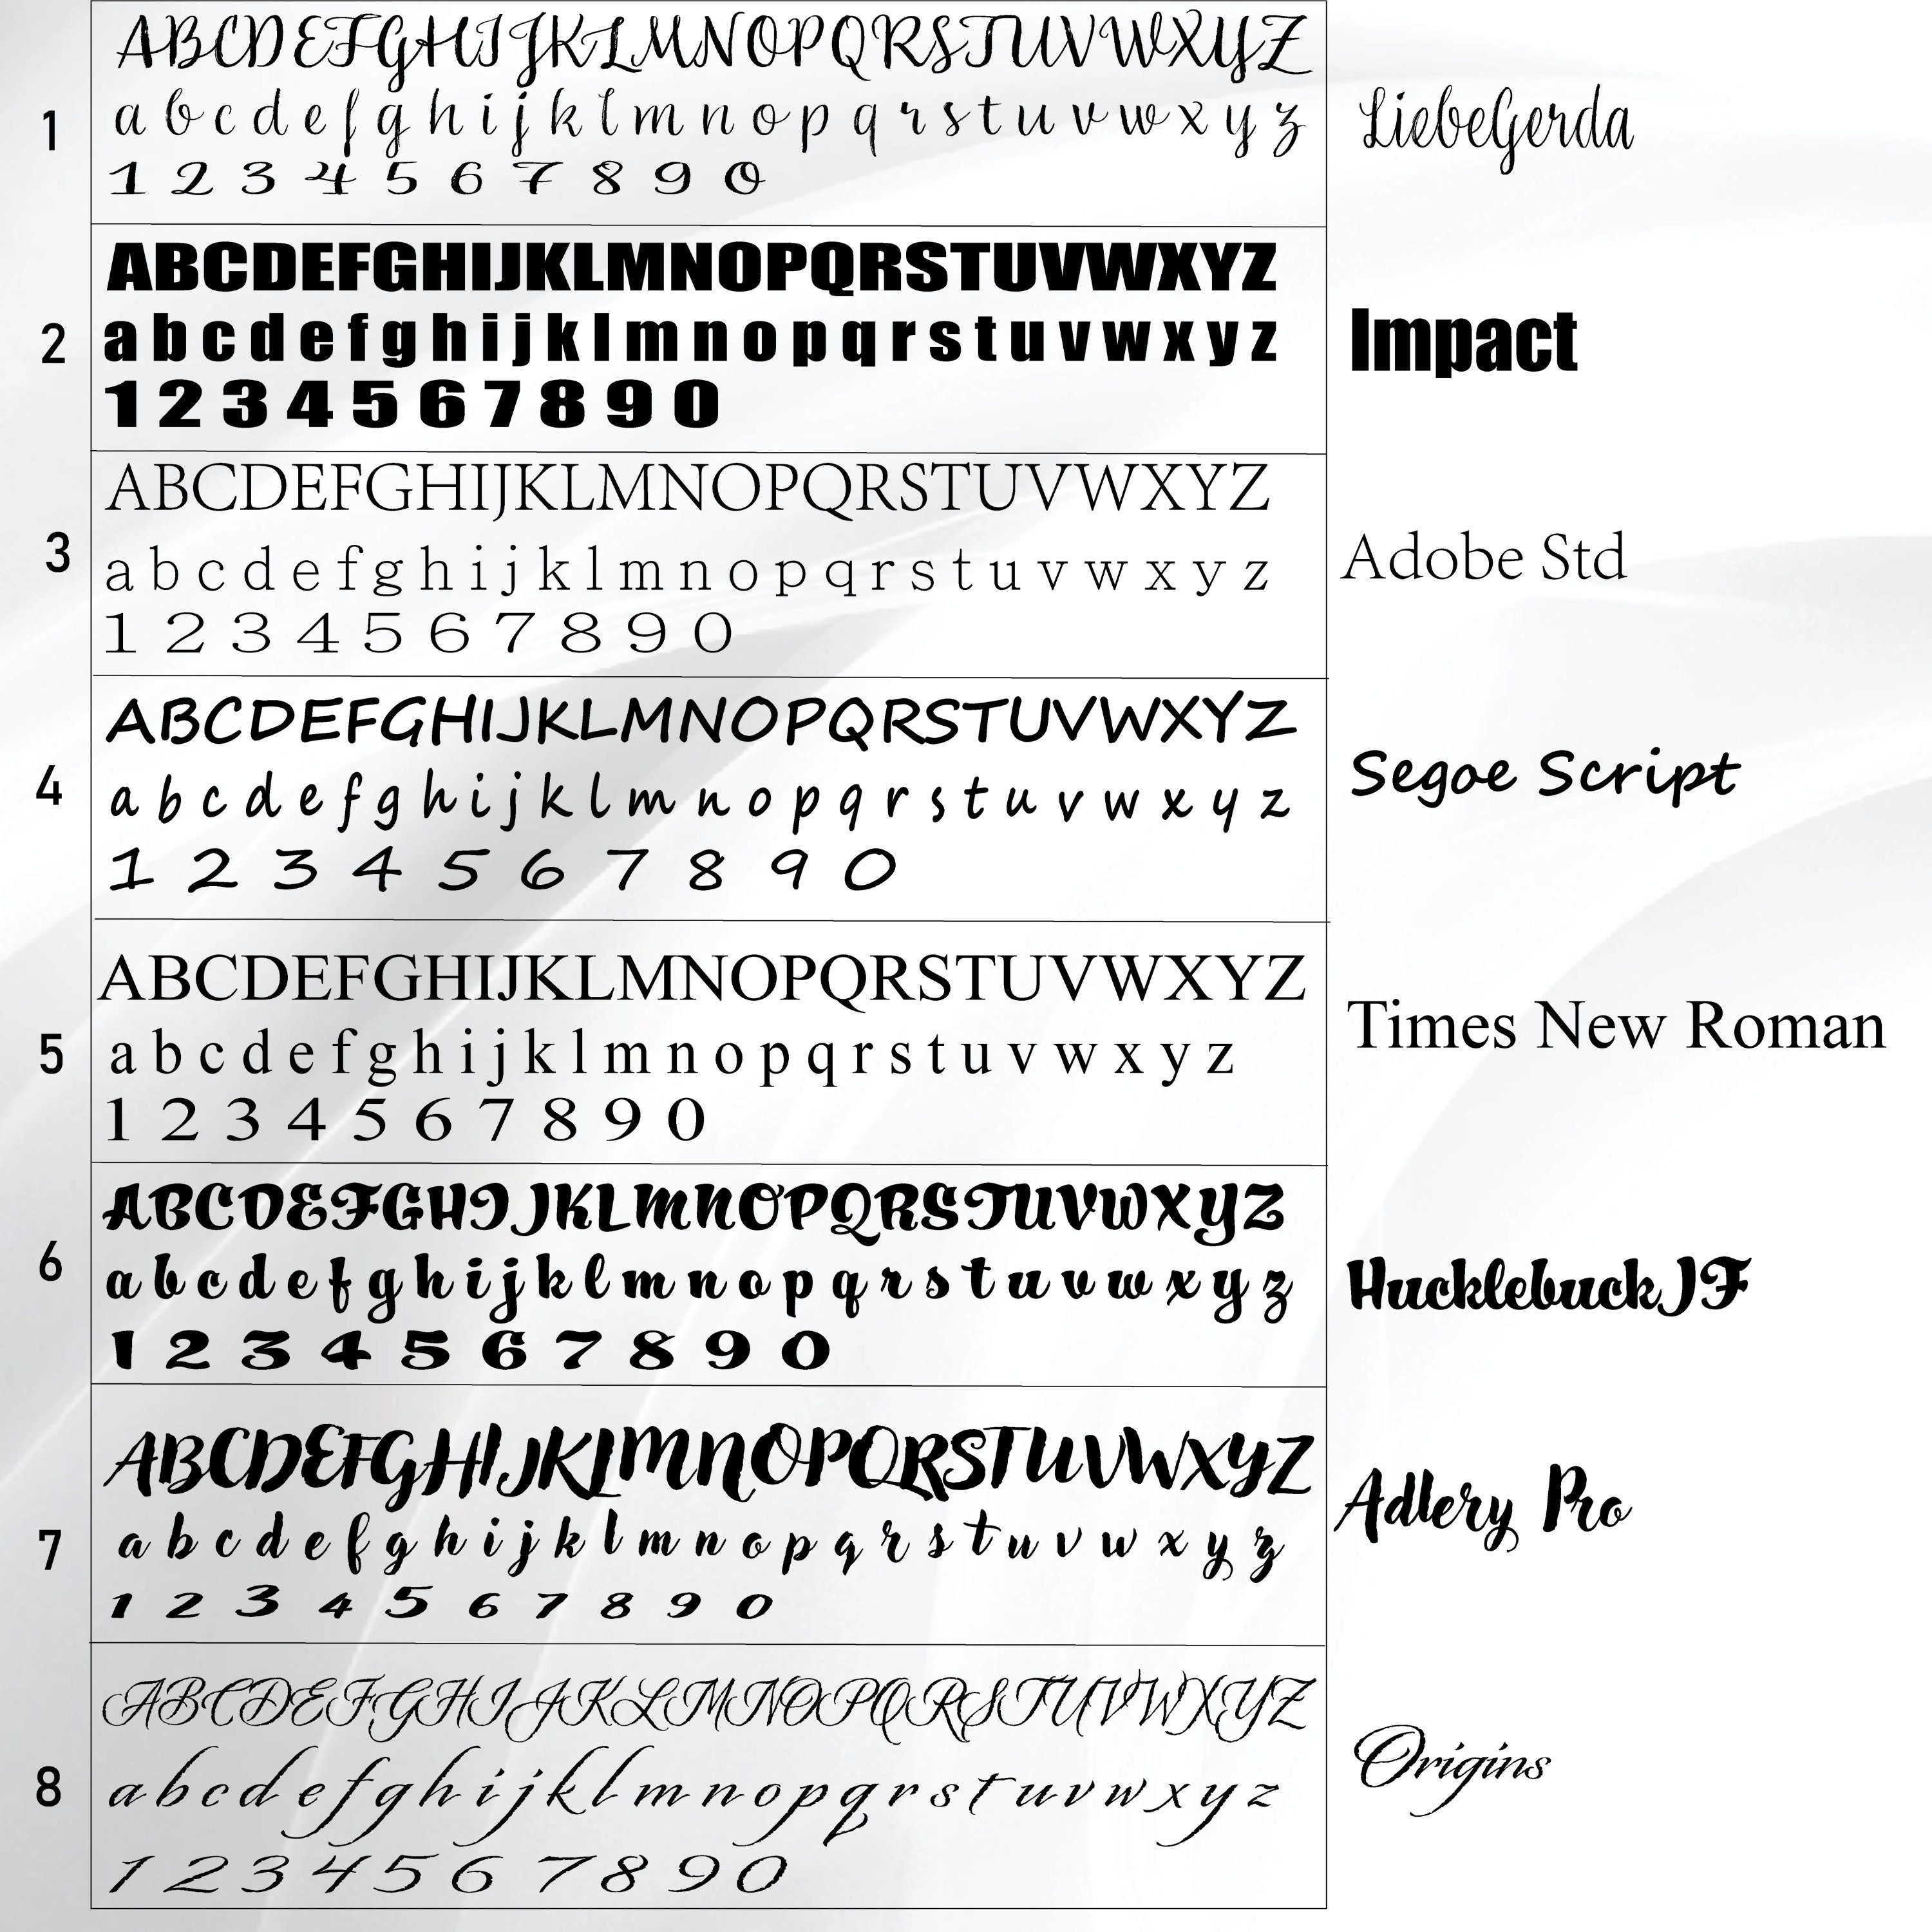 1
ABCDEFGHIJKLMNOPQRSTUVWXYZ
a b c d e f g h i j k l m n o p q r s t u v w x y z
1 2 3 4 5 6 7 8 9 0
LiebeGerda
2
ABCDEFGHIJKLMNOPQRSTUVWXYZ
a b c d e f g h i j k l m n o p q r s t u v w x y z
1 2 3 4 5 6 7 8 9 0
Impact
3
ABCDEFGHIJKLMNOPQRSTUVWXYZ
a b c d e f g h i j k l m n o p q r s t u v w x y z
1 2 3 4 5 6 7 8 9 0
Adobe Std
4
ABCDEFGHIJKLMNOPQRSTUVWXYZ
a b c d e f g h i j k l m n o p q r s t u v w x y z
1 2 3 4 5 6 7 8 9 0
Segoe Script
5
ABCDEFGHIJKLMNOPQRSTUVWXYZ
a b c d e f g h i j k l m n o p q r s t u v w x y z
1 2 3 4 5 6 7 8 9 0
Times New Roman
6
ABCDEFGHIJKLMNOPQRSTUVWXYZ
a b c d e f g h i j k l m n o p q r s t u v w x y z
1 2 3 4 5 6 7 8 9 0
HucklebuckJF
7
ABCDEFGHIJKLMNOPQRSTUVWXYZ
a b c d e f g h i j k l m n o p q r s t u v w x y z
1 2 3 4 5 6 7 8 9 0
Adlery Pro
8
ABCDEFGHIJKLMNOPQRSTUVWXYZ
a b c d e f g h i j k l m n o p q r s t u v w x y z
1 2 3 4 5 6 7 8 9 0
Origins